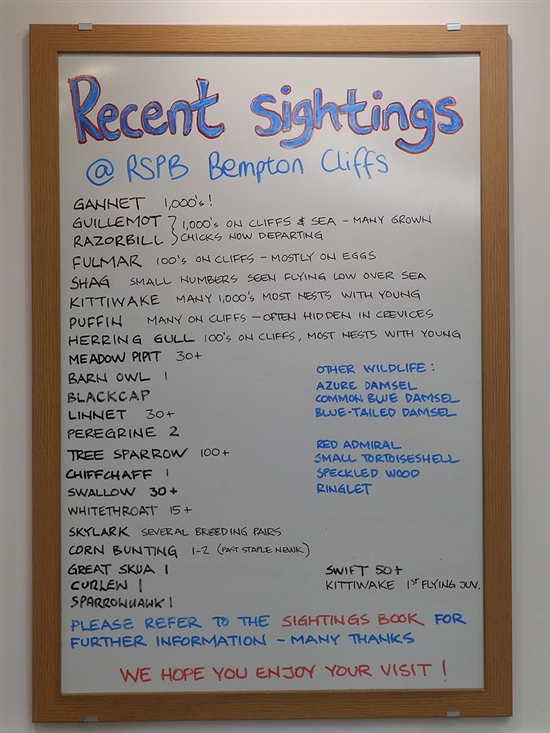 Recent Sightings
@ RSPB Bempton Cliffs
GANNET 1,000's!
GUILLEMOT } 1,000's ON CLIFFS & SEA - MANY GROWN
RAZORBILL } CHICKS NOW DEPARTING
FULMAR 100's ON CLIFFS - MOSTLY ON EGGS
SHAG SMALL NUMBERS SEEN FLYING LOW OVER SEA
KITTIWAKE MANY 1,000's MOST NESTS WITH YOUNG
PUFFIN MANY ON CLIFFS - OFTEN HIDDEN IN CREVICES
HERRING GULL 100's ON CLIFFS, MOST NESTS WITH YOUNG
MEADOW PIPIT 30+
BARN OWL 1
BLACKCAP
LINNET 30+
PEREGRINE 2
TREE SPARROW 100+
CHIFFCHAFF 1
SWALLOW 30+
WHITETHROAT 15+
SKYLARK SEVERAL BREEDING PAIRS
CORN BUNTING 1-2 (PAST STAPLE NEWK)
GREAT SKUA 1
CURLEW 1
SPARROWHAWK 1
OTHER WILDLIFE:
AZURE DAMSEL
COMMON BLUE DAMSEL
BLUE-TAILED DAMSEL
RED ADMIRAL
SMALL TORTOISESHELL
SPECKLED WOOD
RINGLET
SWIFT 50+
KITTIWAKE 1ST FLYING JUV.
PLEASE REFER TO THE SIGHTINGS BOOK FOR
FURTHER INFORMATION - MANY THANKS
WE HOPE YOU ENJOY YOUR VISIT!